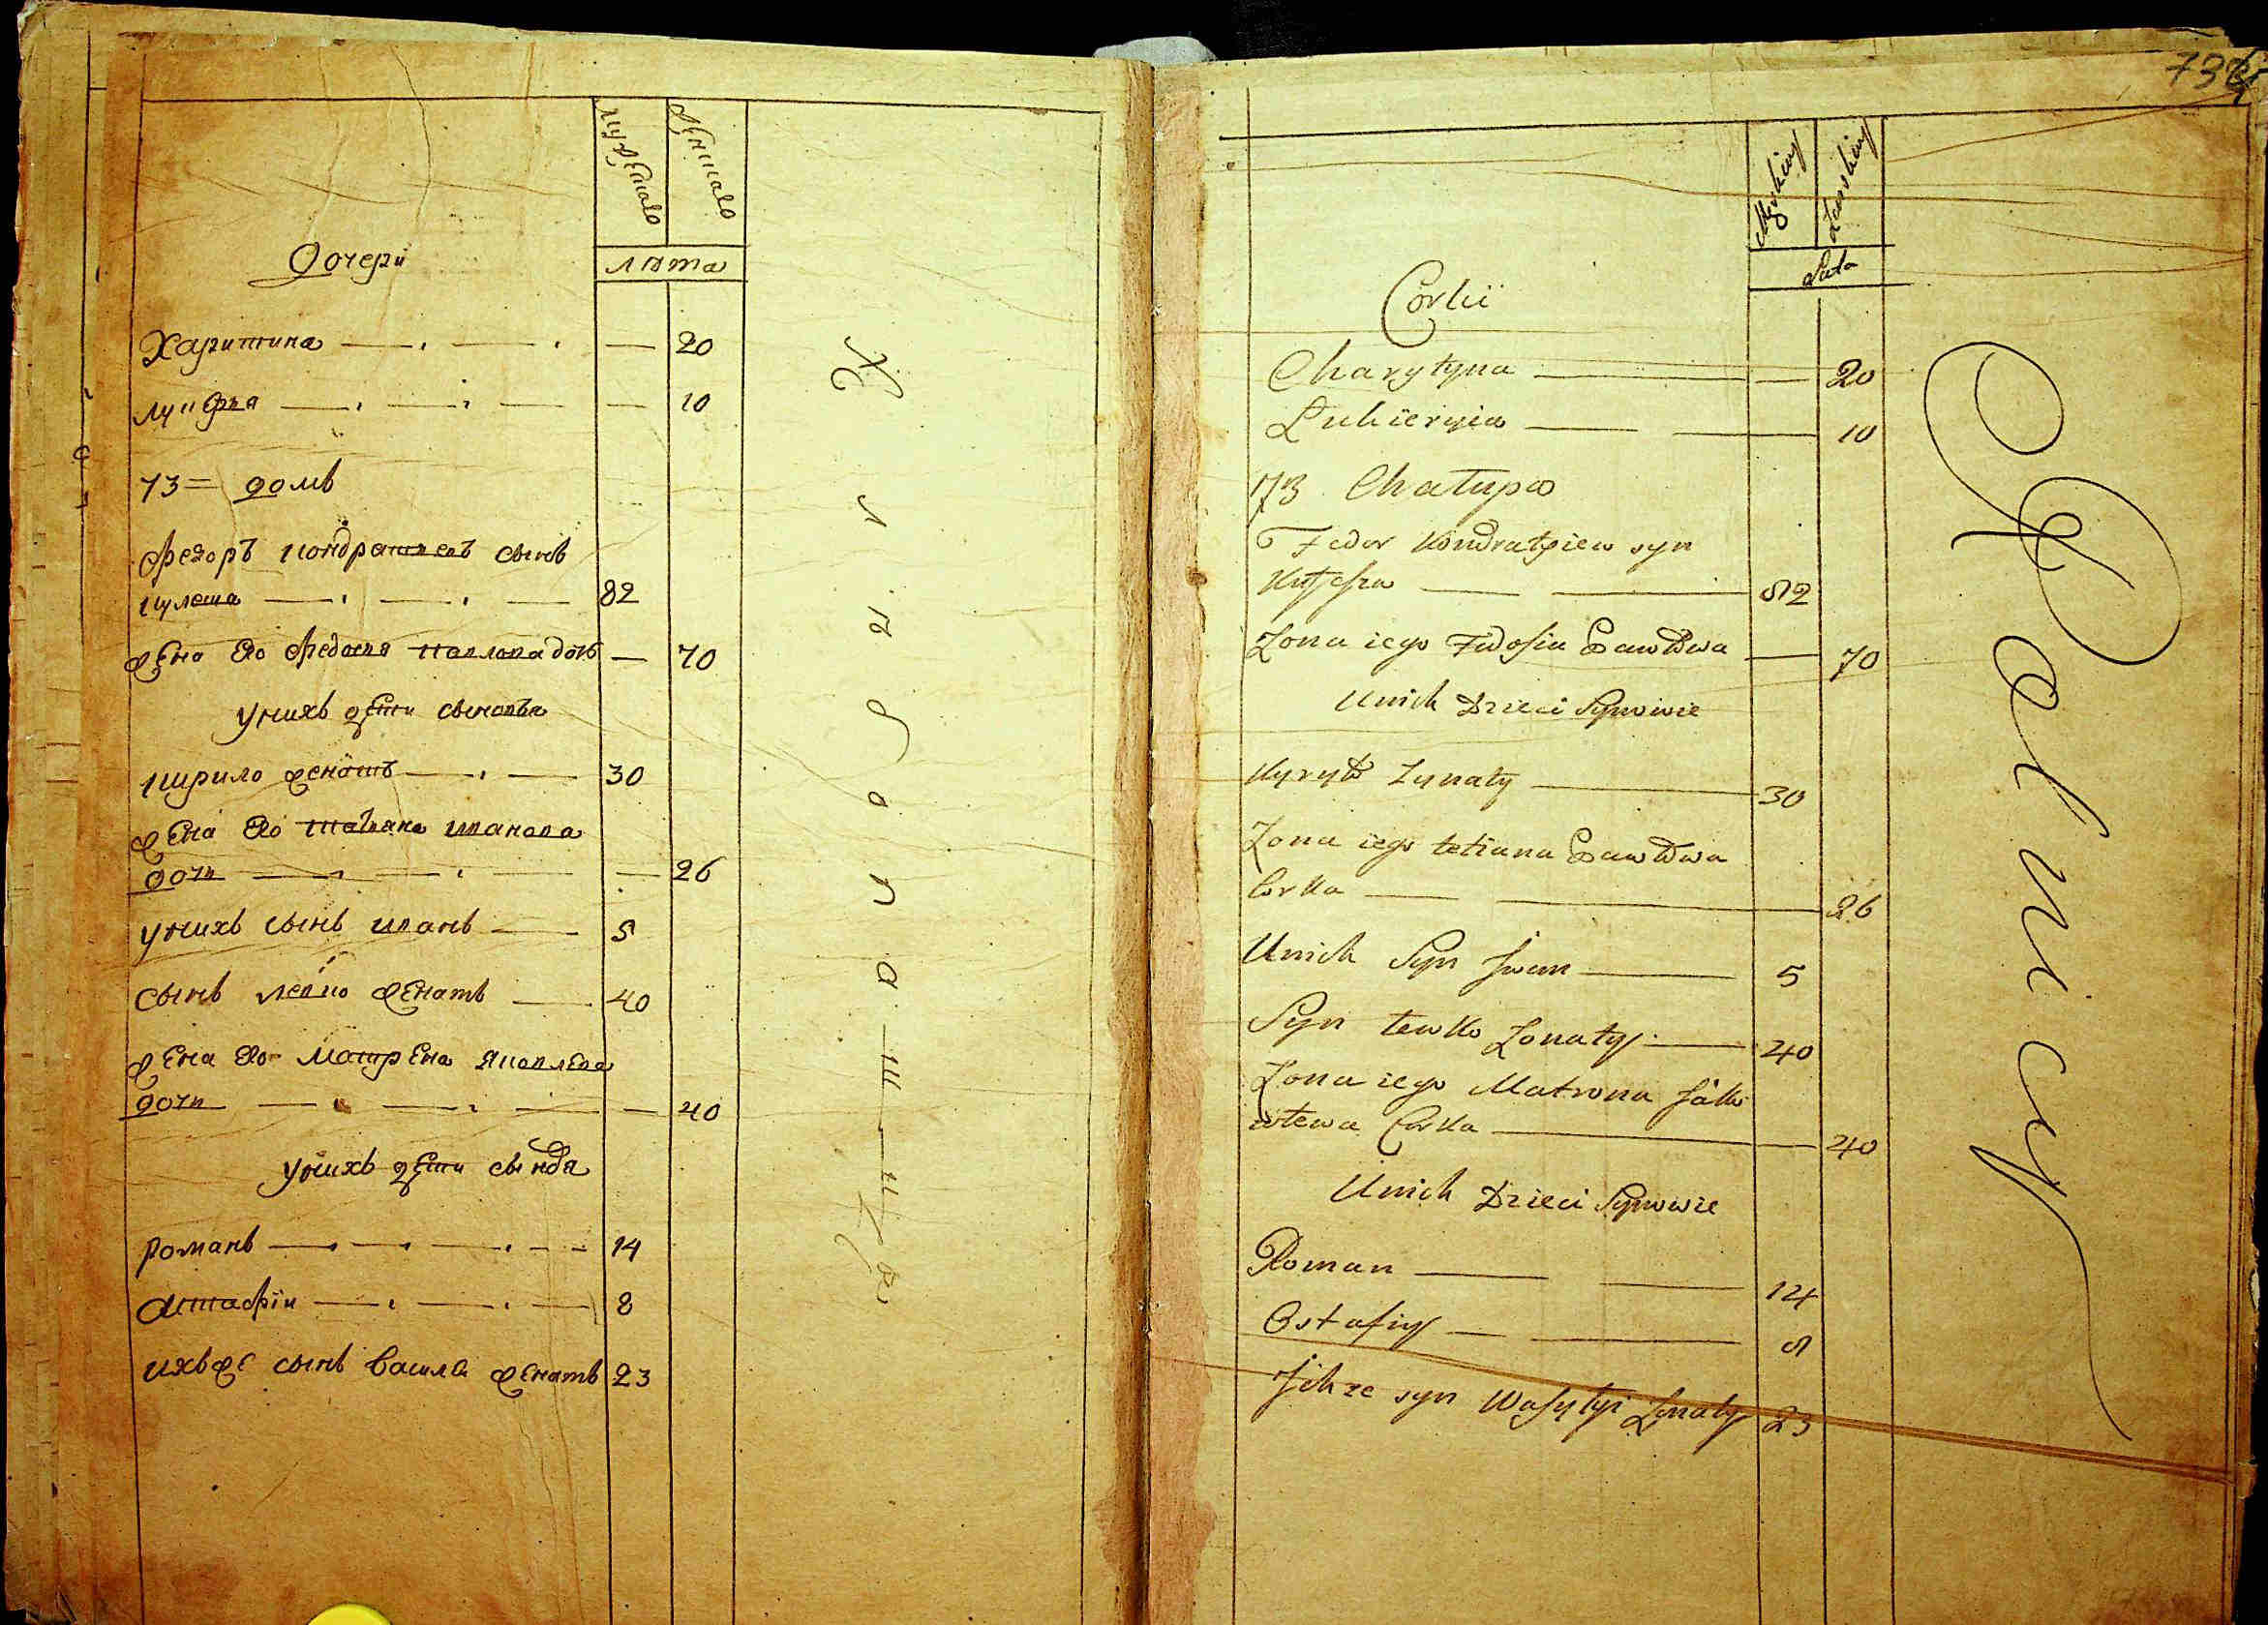 мужеска
женска
лѣта
Дочери
Харитина 20
Лукерья 10
73 = домъ
Федоръ Кондратьевъ сынъ
Кулеша 82
Жена его Федосья Павлова дочь 70
У нихъ дети сыновья
Кирило женатъ 30
Жена его Татьяна Иванова
дочь 26
У нихъ сынъ Иванъ 5
Сынъ Левко женатъ 40
Жена его Матрена Яковлева
дочь 40
У нихъ дети сыновья
Романъ 14
Астафiй 8
Ихъ же сынъ Василей женатъ 23
Хлѣбопашцы
734
Męskiey
Zenskiey
Lata
Corki
Charytyna 20
Lukieryia 10
73 Chałupa
Fedor Kondratyiew syn
Kulesza 82
Zona iego Fedosia Pawłowa 70
Unich Dzieci Synowie
Kyryło Zynaty 30
Zona iego tetiana Pawłowa
Corka 26
Unich Syn Jwan 5
Syn Lewko Zonaty 40
Zona iego Matrona Jako
wlewa Corka 40
Unich Dzieci Synowie
Roman 14
Ostafiy 8
Jchze syn Wasylyi Zonaty 23
Rolnicy